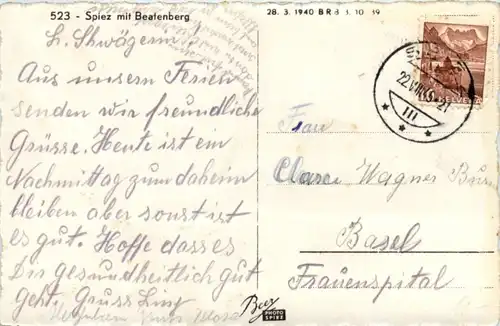 523 - Spiez mit Beatenberg
28. 3. 1940 B R B 3. 10 39
L. Schwägerin
Aus unsern Ferien
senden wir freundliche
Grüsse. Heute ist ein
Nachmittag zum daheim
bleiben aber sonst ist
es gut. Hoffe dass es
Dir gesundheitlich gut
geht. Gruss Liny
HELVETIA
Frau
Clara Wagner
Basel
Frauenspital
Beez
PHOTO
SPIEZ